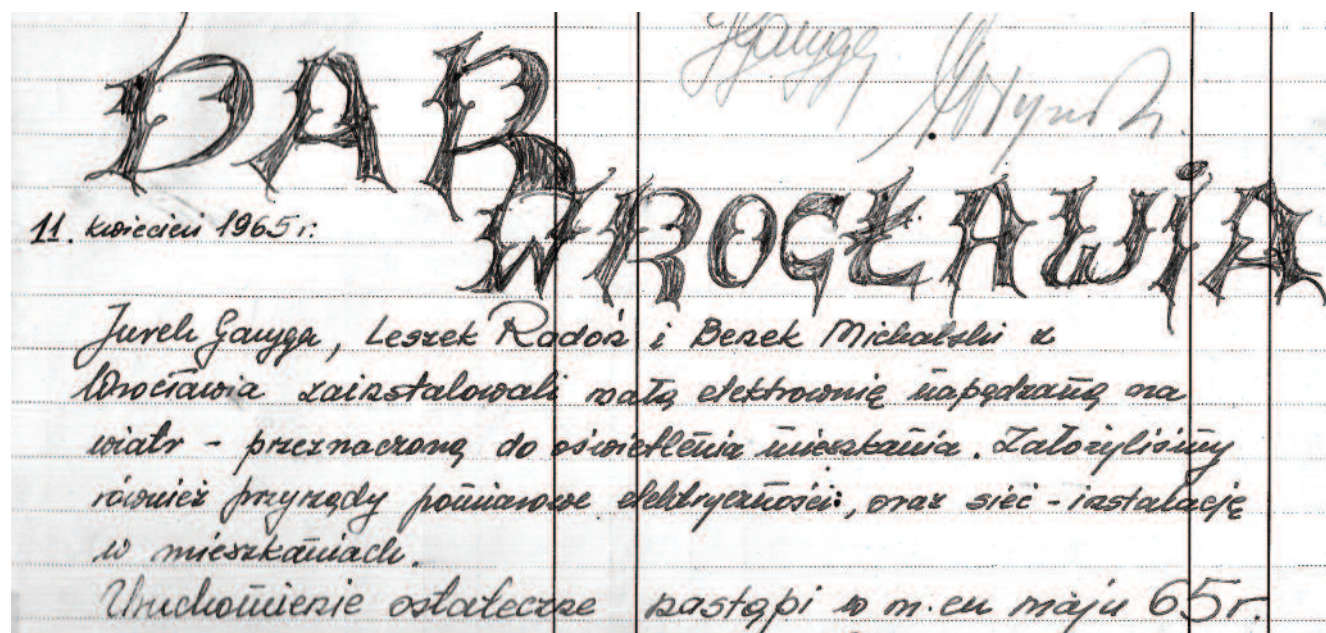 DAR
WROCŁAWIA
11. kwiecień 1965 r.
Jurek Gauyga, Leszek Radoń i Benek Michalski z
Wrocławia zainstalowali małą elektrownię napędzaną na
wiatr - przeznaczoną do oświetlenia mieszkania. Założyliśmy
również przyrządy pomiarowe elektryczności, oraz sieć - instalację
w mieszkaniach.
Uruchomienie ostateczne nastąpi w m-cu maju 65 r.